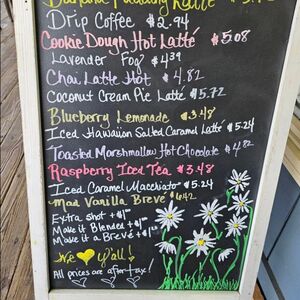 Banana Pudding Latte $5.72
Drip Coffee $2.94
Cookie Dough Hot Latté $5.08
Lavender Fog $4.39
Chai Latte Hot $4.82
Coconut Cream Pie Latte $5.72
Blueberry Lemonade $3.48
Iced Hawaiian Salted Caramel Latte $5.24
Toasted Marshmallow Hot Chocolate $4.82
Raspberry Iced Tea $3.48
Iced Caramel Macchiato $5.24
Mad Vanilla Brevé $6.42
Extra Shot +$1⁰⁰
Make it Blended +$1⁰⁰
Make it a Brevé +$1⁰⁰
We y'all!
All prices are after-tax!